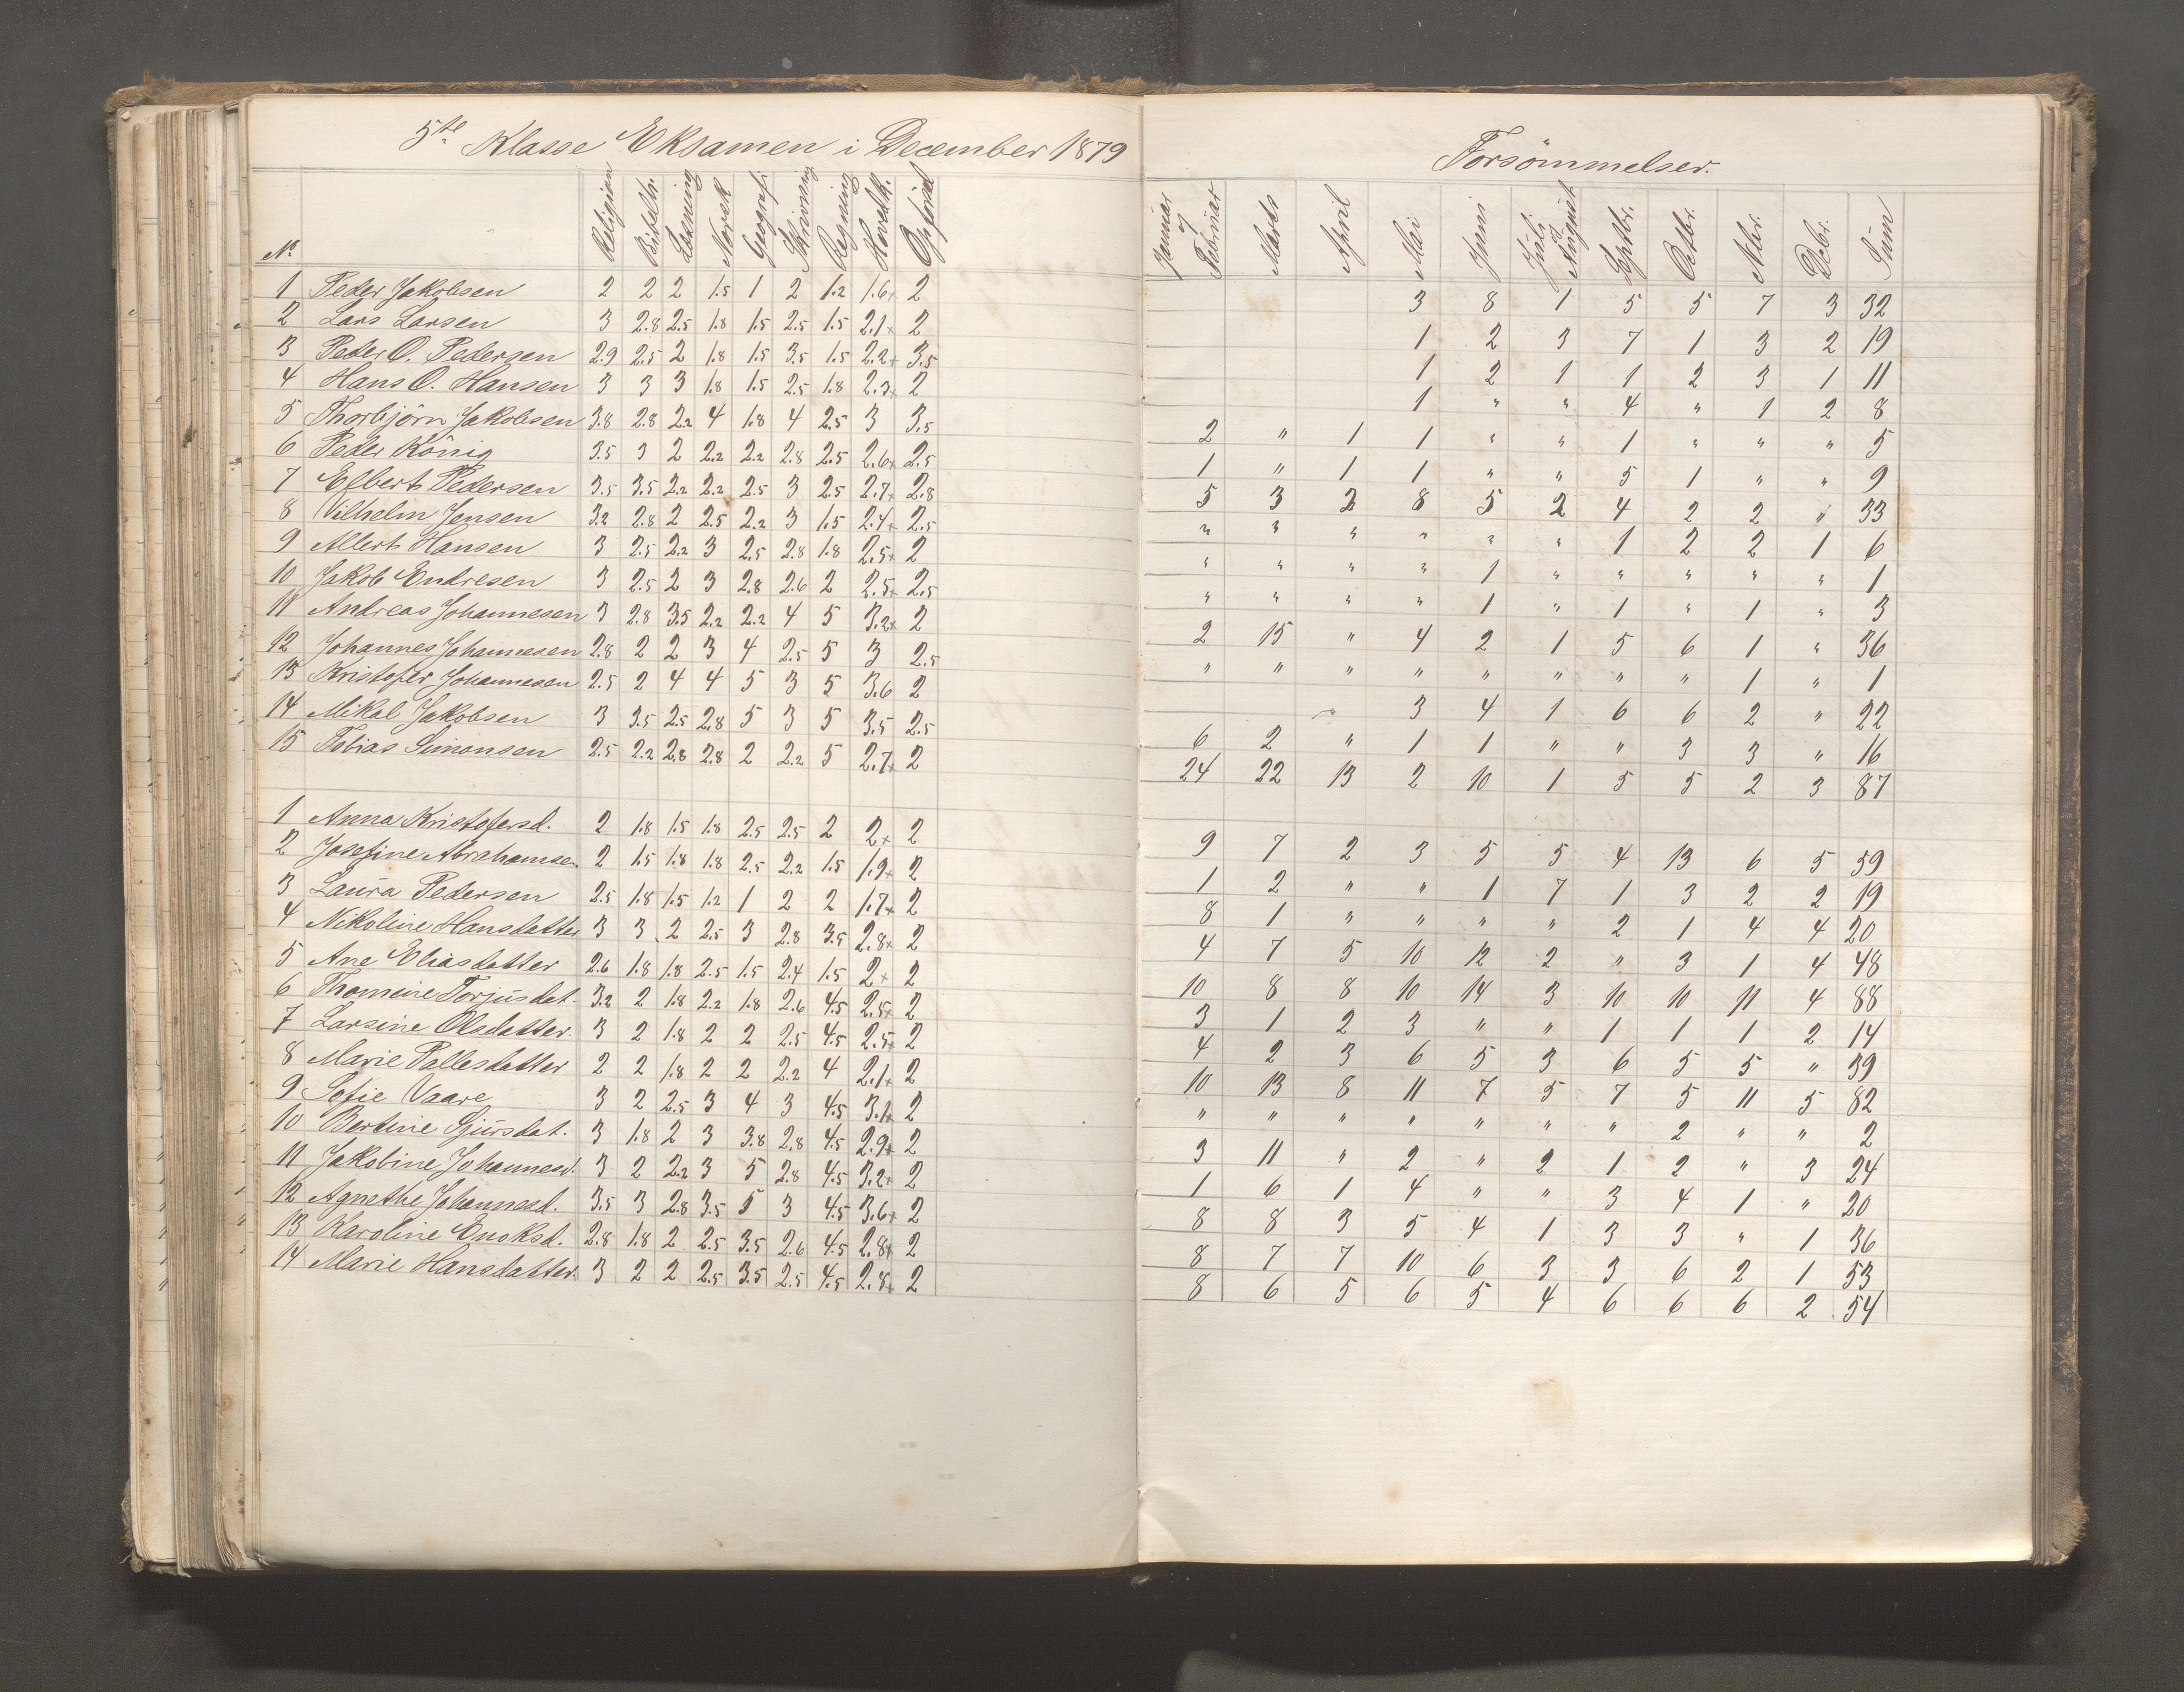 5te Klasse Eksamen i December 1879
No Religion Bibelh. Læsning Norsk Geografi Skrivning Regning Hovedk. Opførsel
1 Peder Jakobsen 2 2 2 1.5 1 2 1.2 1.6+ 2
2 Lars Larsen 3 2.8 2.5 1.8 1.5 2.5 1.5 2.1+ 2
3 Peder O. Pedersen 2.9 2.5 2 1.8 1.5 3.5 1.5 2.2+ 3.5
4 Hans O. Hansen 3 3 3 1.8 1.5 2.5 1.8 2.3+ 2
5 Thorbjörn Jakobsen 3.8 2.8 2.2 4 1.8 4 2.5 3 3.5
6 Peder König 3.5 3 2 2.2 2.2 2.8 2.5 2.6+ 2.5
7 Elbert Pedersen 3.5 3.5 2.2 2.2 2.5 3 2.5 2.7+ 2.8
8 Vilhelm Jensen 3.2 2.8 2 2.5 2.2 3 1.5 2.4+ 2.5
9 Albert Hansen 3 2.5 2.2 3 2.5 2.8 1.8 2.5+ 2
10 Jakob Endresen 3 2.5 2 3 2.8 2.6 2 2.5+ 2.5
11 Andreas Johannesen 3 2.8 3.5 2.2 2.2 4 5 3.2+ 2
12 Johannes Johannesen 2.8 2 2 3 4 2.5 5 3 2.5
13 Kristofer Johannesen 2.5 2 4 4 5 3 5 3.6 2
14 Mikal Jakobsen 3 3.5 2.5 2.8 5 3 5 3.5 2.5
15 Tobias Simonsen 2.5 2.2 2.8 2.8 2 2.2 5 2.7+ 2
1 Anna Kristofersd. 2 1.8 1.5 1.8 2.5 2.5 2 2+ 2
2 Josefine Abrahamsen 2 1.5 1.8 1.8 2.5 2.2 1.5 1.9+ 2
3 Laura Pedersen 2.5 1.8 1.5 1.2 1 2 2 1.7+ 2
4 Nikoline Hansdatter 3 3 2 2.5 3 2.8 3.5 2.8+ 2
5 Ane Eliasdatter 2.6 1.8 1.8 2.5 1.5 2.4 1.5 2+ 2
6 Thomine Torjusdat. 3.2 2 1.8 2.2 1.8 2.6 4.5 2.5+ 2
7 Larsine Olsdatter. 3 2 1.8 2 2 2.5 4.5 2.5+ 2
8 Marie Pallesdatter 2 2 1.8 2 2 2.2 4 2.1+ 2
9 Sofie Vaare 3 2 2.5 3 4 3 4.5 3.1+ 2
10 Bertine Sjursdat. 3 1.8 2 3 3.8 2.8 4.5 2.9+ 2
11 Jakobine Johannesd. 3 2 2.2 3 5 2.8 4.5 3.2+ 2
12 Agnethe Johannesd. 3.5 3 2.8 3.5 5 3 4.5 3.6+ 2
13 Karoline Enoksd. 2.8 1.8 2 2.5 3.5 2.6 4.5 2.8+ 2
14 Marie Hansdatter. 3 2 2 2.5 3.5 2.5 4.5 2.8+ 2
Forsömmelser.
Januar & Februar Marts April Mai Juni Juli & August Septbr. Octbr. Nbr. Debr. Sum
3 8 1 5 5 7 3 32
1 2 3 7 1 3 2 19
1 2 1 1 2 3 1 11
1 " " 4 " 1 2 8
2 " 1 1 " " 1 " " " 5
1 " 1 1 " " 5 1 " " 9
5 3 2 8 5 2 4 2 2 " 33
" " " " " " 1 2 2 1 6
" " " " 1 " " " " " 1
" " " " 1 " 1 " 1 " 3
2 15 " 4 2 1 5 6 1 " 36
" " " " " " " " 1 " 1
3 4 1 6 6 2 " 22
6 2 " 1 1 " " 3 3 " 16
24 22 13 2 10 1 5 5 2 3 87
9 7 2 3 5 5 4 13 6 5 59
1 2 " " 1 7 1 3 2 2 19
8 1 " " " " 2 1 4 4 20
4 7 5 10 12 2 " 3 1 4 48
10 8 8 10 14 3 10 10 11 4 88
3 1 2 3 " " 1 1 1 2 14
4 2 3 6 5 3 6 5 5 " 39
10 13 8 11 7 5 7 5 11 5 82
" " " " " " " 2 " " 2
3 11 " 2 " 2 1 2 " 3 24
1 6 1 4 " " 3 4 1 " 20
8 8 3 5 4 1 3 3 " 1 36
8 7 7 10 6 3 3 6 2 1 53
8 6 5 6 5 4 6 6 6 2 54